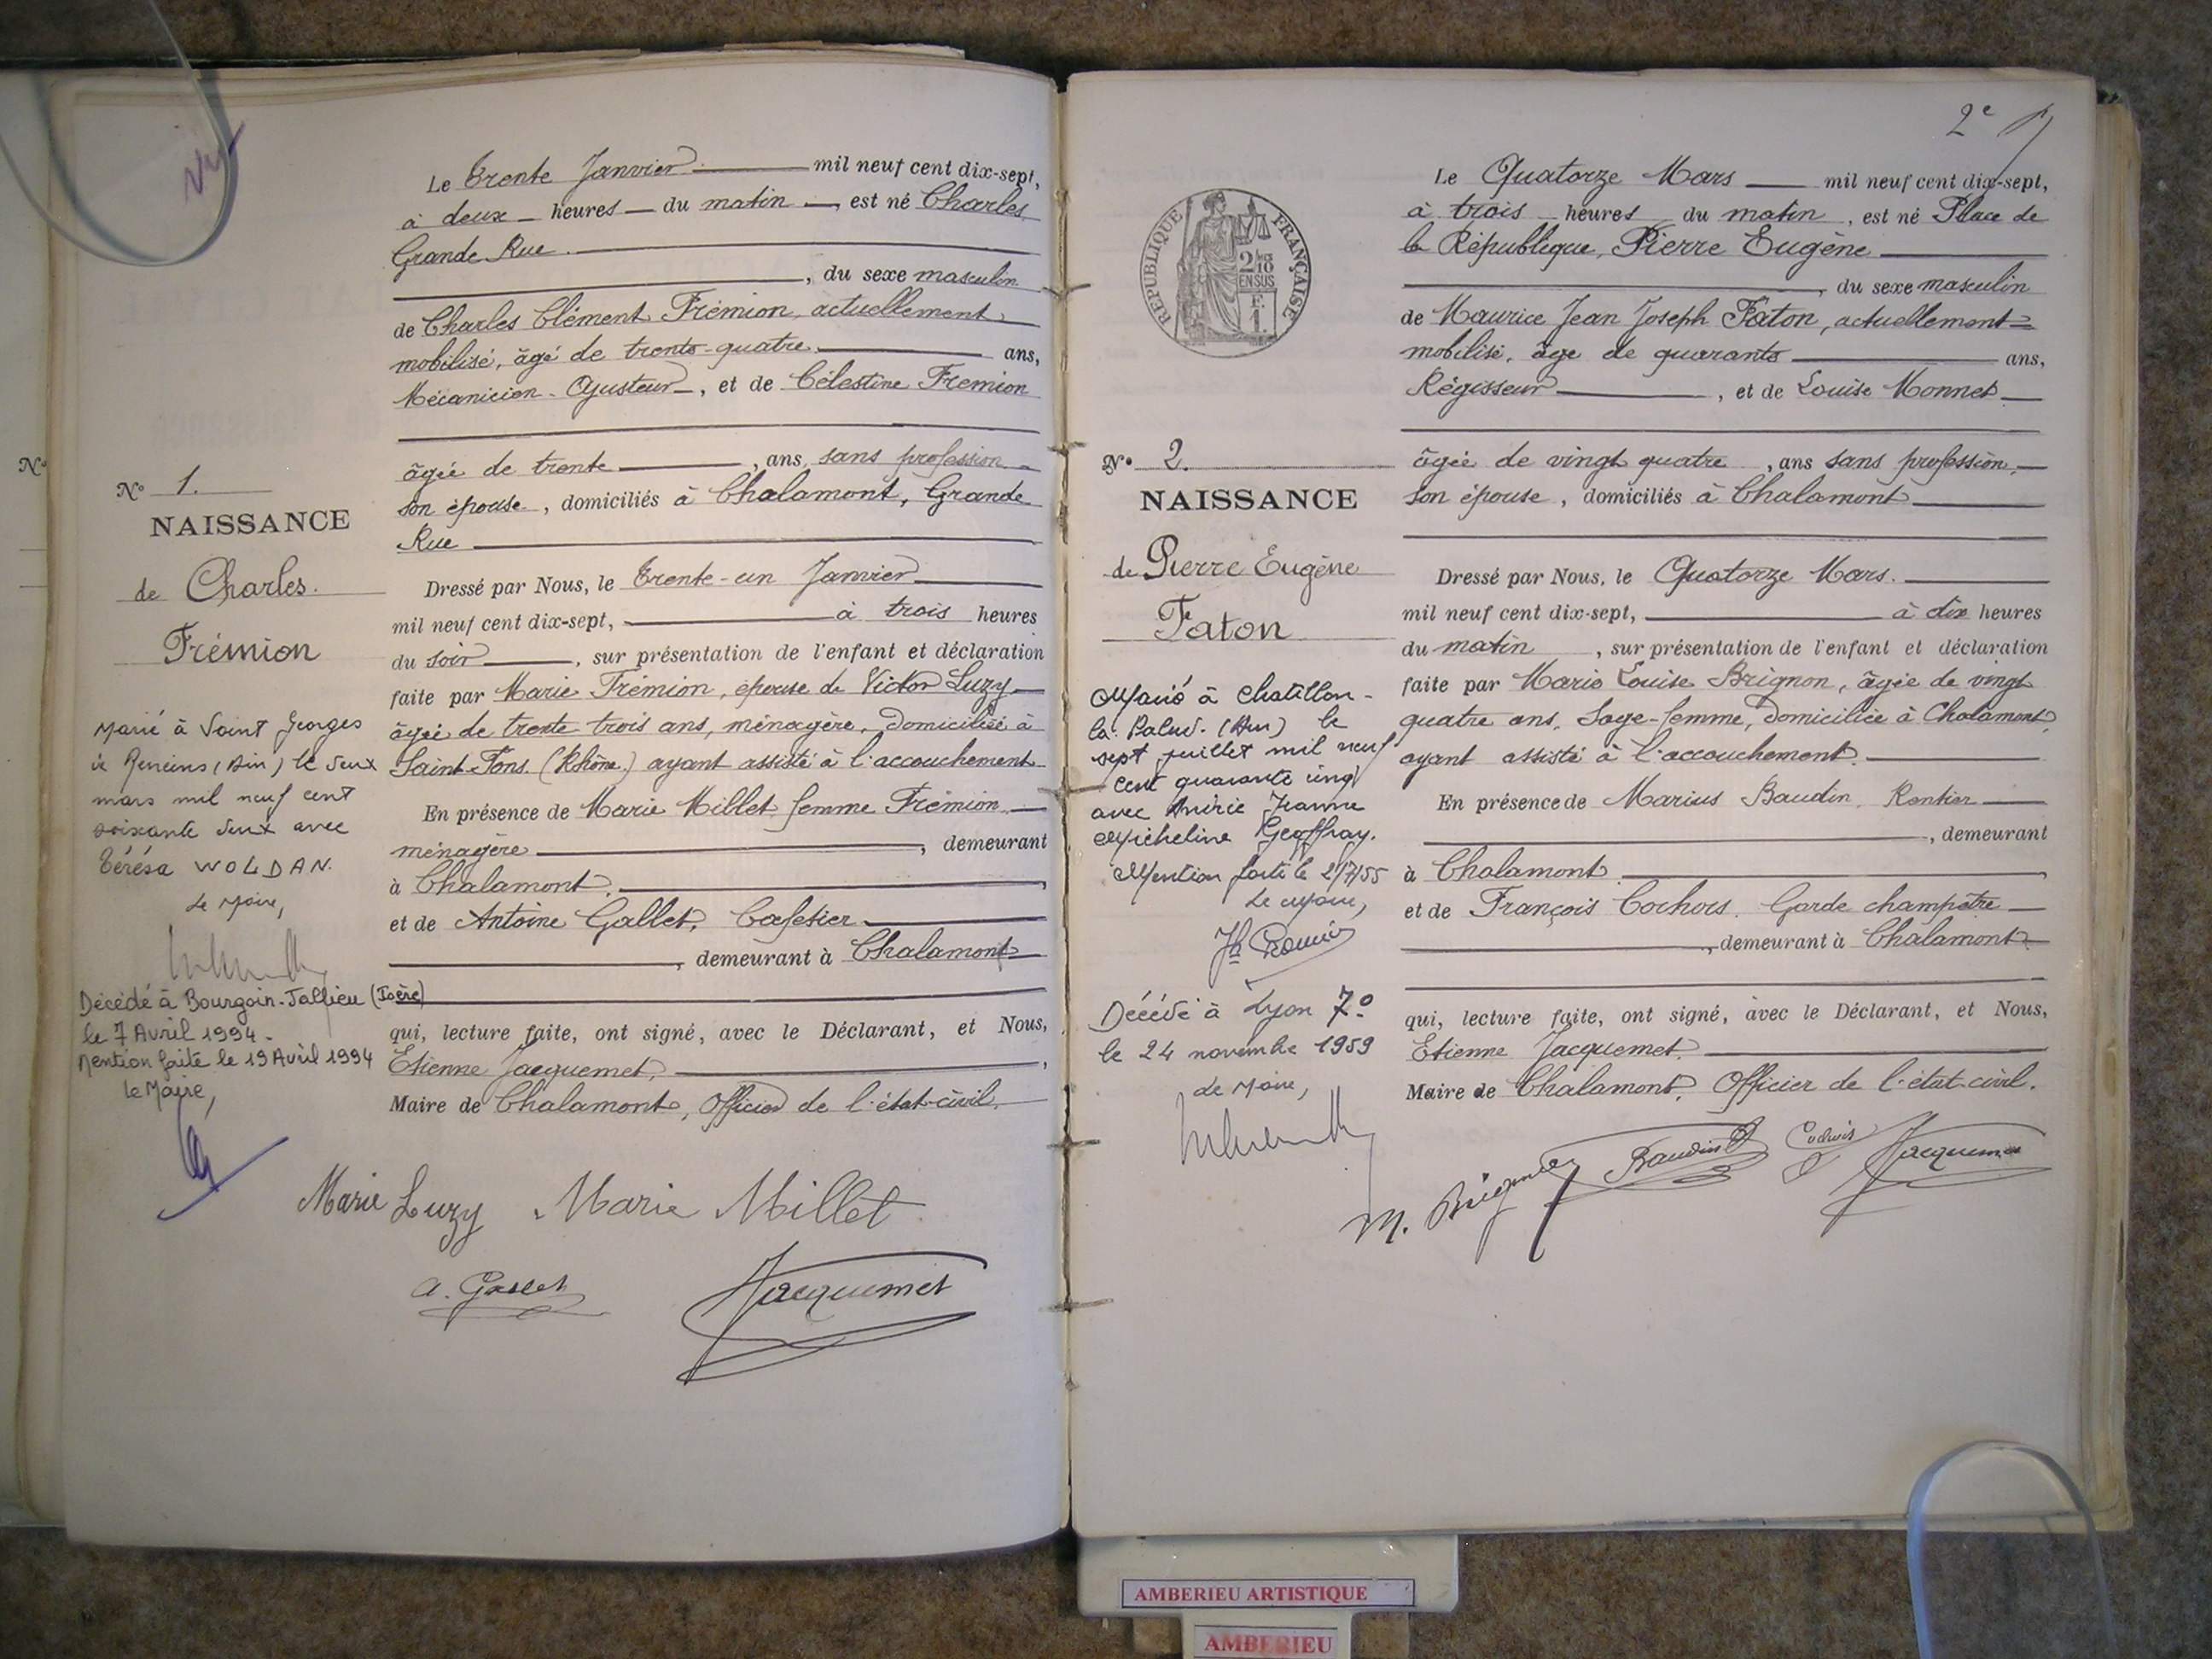 Le Trente Janvier mil neuf cent dix-sept,
à deux heures du matin, est né Charles
Grande Rue
, du sexe masculin
de Charles Clément Frémion, actuellement
mobilisé, âgé de trente-quatre ans,
Mécanicien-Ajusteur, et de Célestine Fremion
âgée de trente, ans, sans profession
son épouse, domiciliés à Chalamont, Grande
Rue
Dressé par Nous, le Trente-un Janvier
mil neuf cent dix-sept, à trois heures
du soir, sur présentation de l'enfant et déclaration
faite par Marie Frémion, épouse de Victor Luzy
âgée de trente trois ans, ménagère, domiciliée à
Saint-Fons (Rhône) ayant assisté à l'accouchement
En présence de Marie Millet femme Frémion
ménagère, demeurant
à Chalamont,
et de Antoine Gallet, Cafetier
, demeurant à Chalamont
qui, lecture faite, ont signé, avec le Déclarant, et Nous,
Etienne Jacquemet,
Maire de Chalamont, Officier de l'état-civil.
Marie Luzy Marie Millet
A. Gallet Jacquemet
N°
N° 1.
NAISSANCE
de Charles.
Frémion
Marié à Saint Georges
de Reneins (Ain) le deux
mars mil neuf cent
soixante deux avec
Térésa WOLDAN.
Le Maire,
Décédé à Bourgoin-Jallieu (Isère)
le 7 Avril 1994 -
Mention faite le 19 Avril 1994
Le Maire,
2e
REPUBLIQUE FRANÇAISE
2/10
EN SUS
F.
1.
N° 2.
NAISSANCE
de Pierre Eugène
Faton
Marié à Chatillon-
la-Palud. (Ain) le
sept juillet mil neuf
cent quarante cinq
avec Andrée Jeanne
Micheline Geoffray.
Mention faite le 2/7/55
Le Maire,
Décédé à Lyon 7°
le 24 novembre 1959
Le Maire,
Le Quatorze Mars mil neuf cent dix-sept,
à trois heures du matin, est né Place de
la République, Pierre Eugène
, du sexe masculin
de Maurice Jean Joseph Faton, actuellement
mobilisé, âgé de quarante ans,
Régisseur, et de Louise Monnet
âgée de vingt quatre, ans sans profession,
son épouse, domiciliés à Chalamont
Dressé par Nous, le Quatorze Mars.
mil neuf cent dix-sept, à dix heures
du matin, sur présentation de l'enfant et déclaration
faite par Marie Louise Brignon, âgée de vingt
quatre ans, Sage-femme, domiciliée à Chalamont,
ayant assisté à l'accouchement.
En présence de Marius Baudin, Rentier
, demeurant
à Chalamont
et de François Cochois, Garde champêtre
, demeurant à Chalamont
qui, lecture faite, ont signé, avec le Déclarant, et Nous,
Etienne Jacquemet,
Maire de Chalamont, Officier de l'état-civil.
M. Brignon Baudin Cochois Jacquemet
AMBERIEU ARTISTIQUE
AMBERIEU